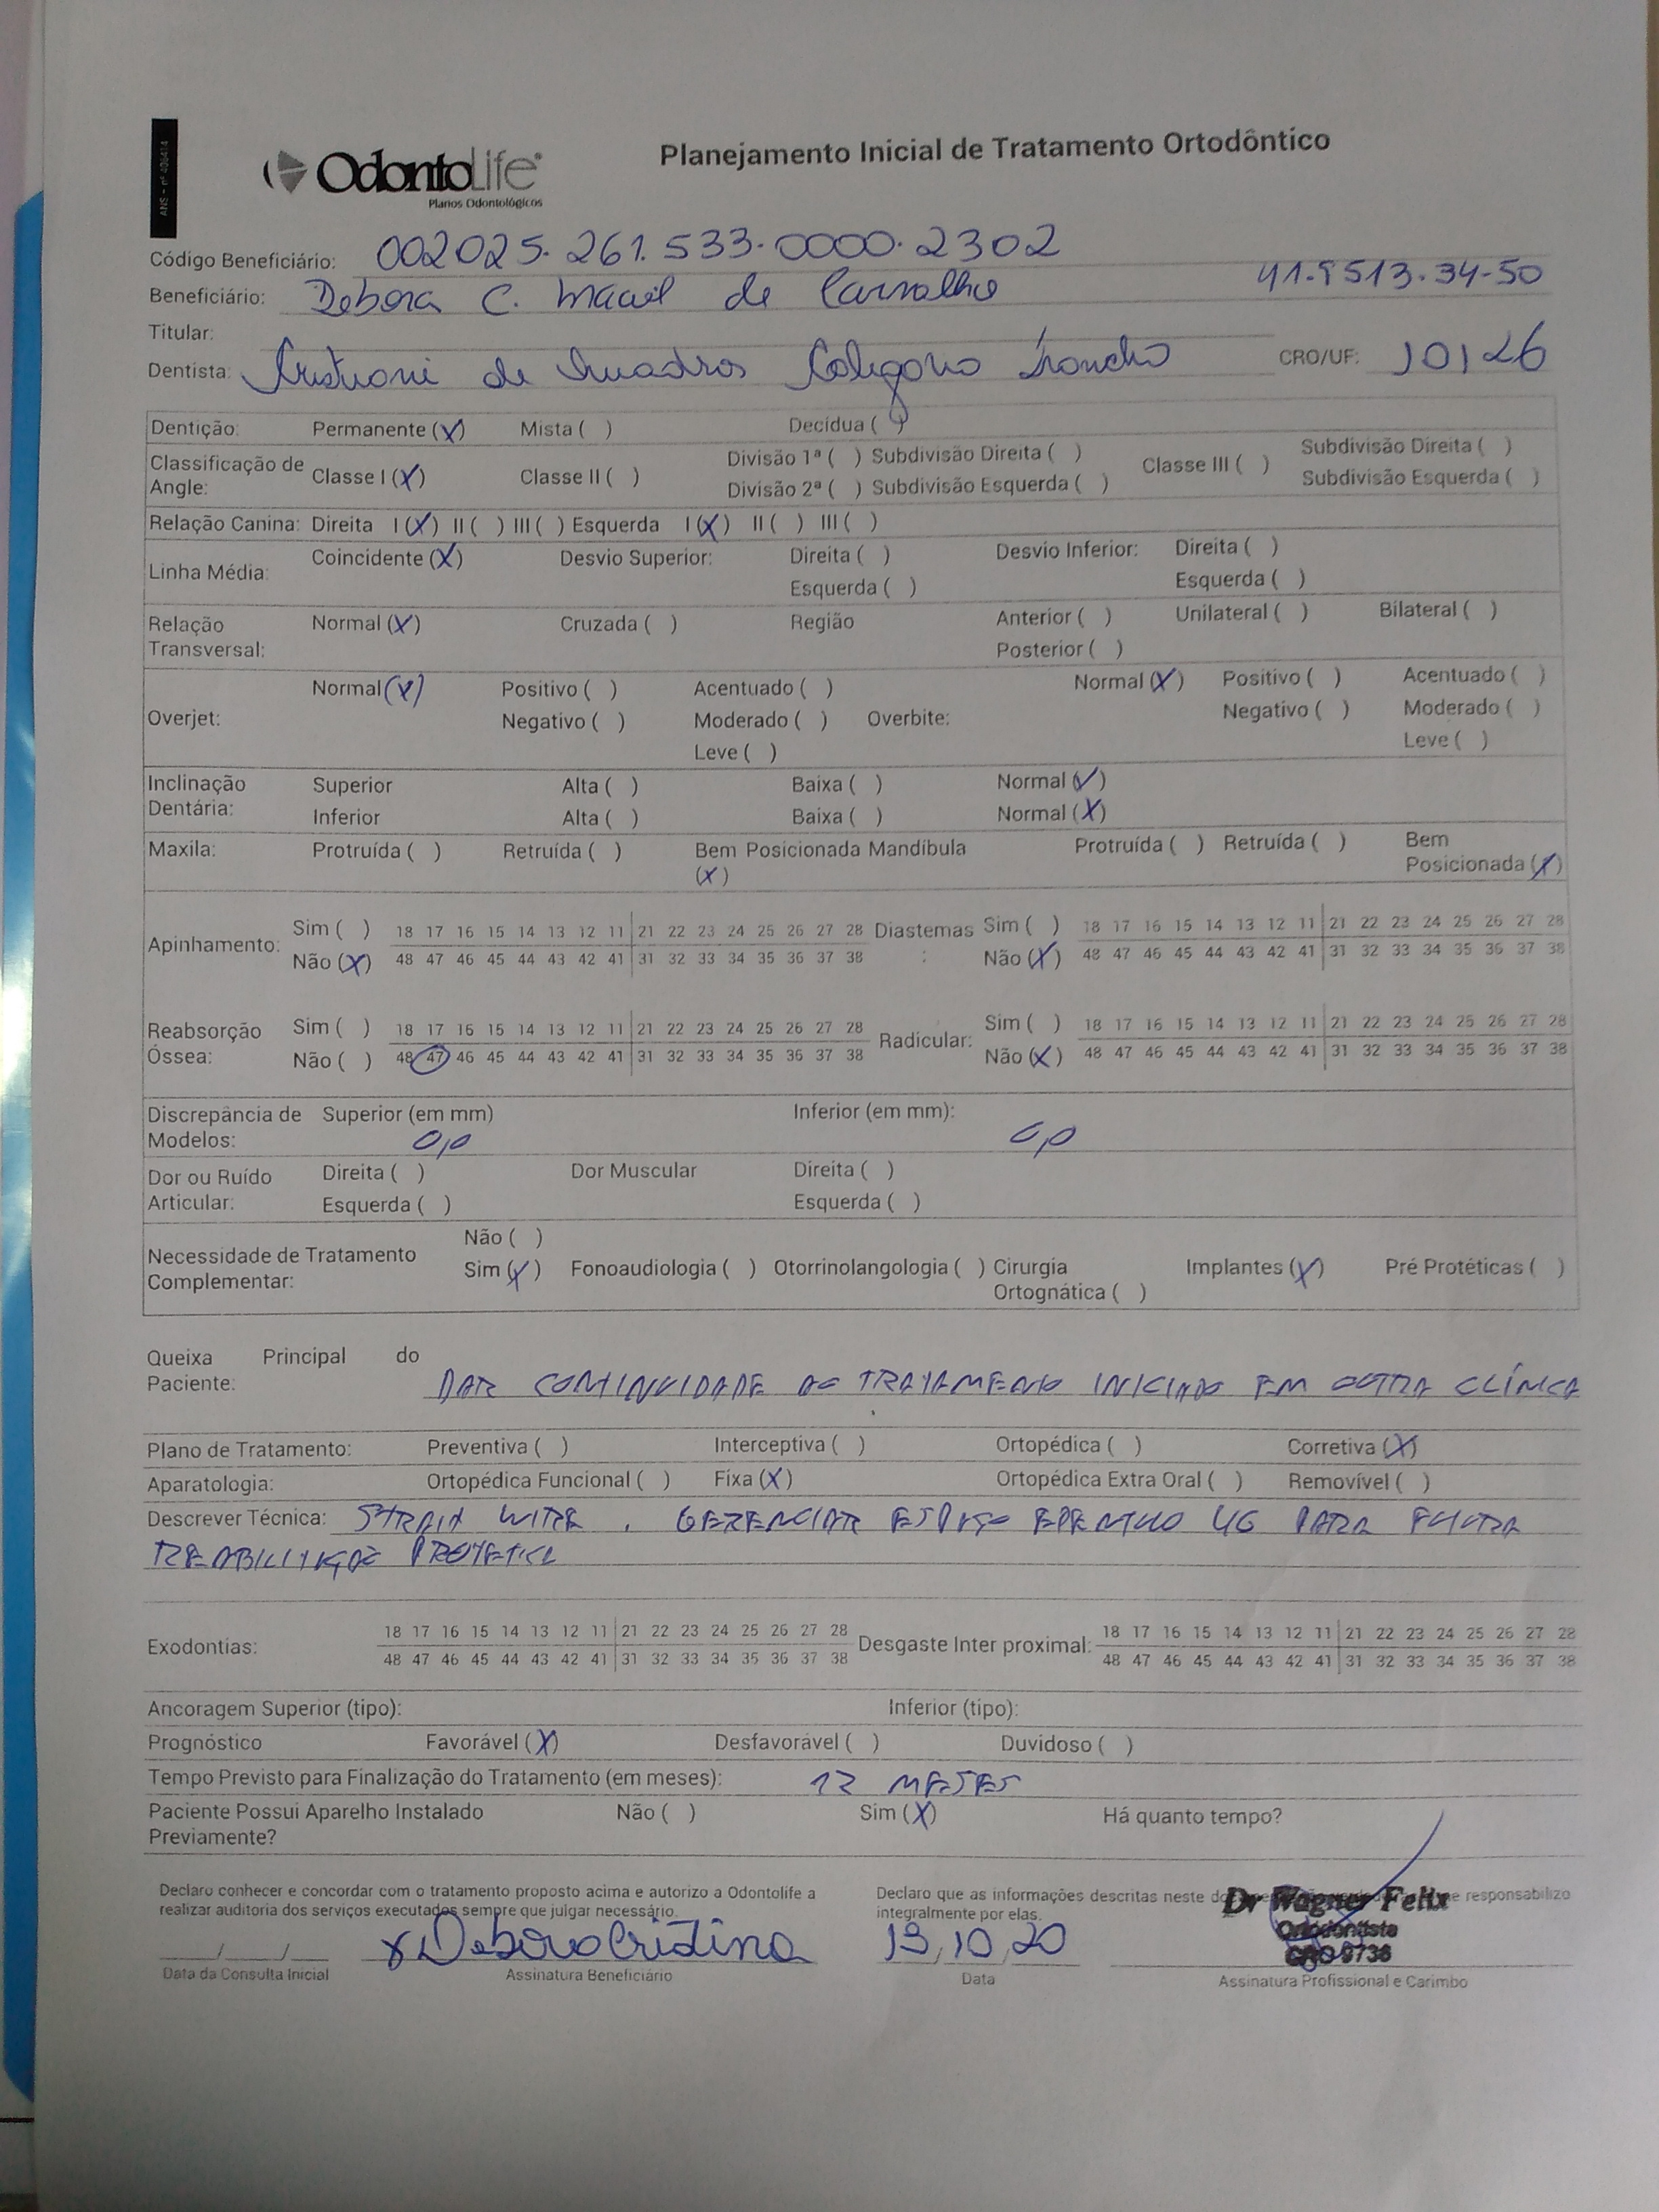 ANS - nº 406414
OdontoLife
Planos Odontológicos
Planejamento Inicial de Tratamento Ortodôntico
Código Beneficiário: 002025.261.533.0000.2302
Beneficiário: Debora C. Maciel de Carvalho 41.9513.34-50
Titular:
Dentista: de CRO/UF: 10126
Dentição: Permanente (X) Mista ( ) Decídua ( )
Classificação de Angle: Classe I (X) Classe II ( ) Divisão 1ª ( ) Subdivisão Direita ( ) Classe III ( ) Subdivisão Direita ( )
Divisão 2ª ( ) Subdivisão Esquerda ( ) Subdivisão Esquerda ( )
Relação Canina: Direita I (X) II ( ) III ( ) Esquerda I (X) II ( ) III ( )
Linha Média: Coincidente (X) Desvio Superior: Direita ( ) Desvio Inferior: Direita ( )
Esquerda ( ) Esquerda ( )
Relação Transversal: Normal (X) Cruzada ( ) Região Anterior ( ) Unilateral ( ) Bilateral ( )
Posterior ( )
Overjet: Normal (X) Positivo ( ) Acentuado ( ) Overbite: Normal (X) Positivo ( ) Acentuado ( )
Negativo ( ) Moderado ( ) Negativo ( ) Moderado ( )
Leve ( ) Leve ( )
Inclinação Dentária: Superior Alta ( ) Baixa ( ) Normal (X)
Inferior Alta ( ) Baixa ( ) Normal (X)
Maxila: Protruída ( ) Retruída ( ) Bem Posicionada (X) Mandíbula Protruída ( ) Retruída ( ) Bem Posicionada (X)
Apinhamento: Sim ( ) 18 17 16 15 14 13 12 11 21 22 23 24 25 26 27 28 Diastemas: Sim ( ) 18 17 16 15 14 13 12 11 21 22 23 24 25 26 27 28
Não (X) 48 47 46 45 44 43 42 41 31 32 33 34 35 36 37 38 Não (X) 48 47 46 45 44 43 42 41 31 32 33 34 35 36 37 38
Reabsorção Óssea: Sim ( ) 18 17 16 15 14 13 12 11 21 22 23 24 25 26 27 28 Radicular: Sim ( ) 18 17 16 15 14 13 12 11 21 22 23 24 25 26 27 28
Não ( ) 48 47 46 45 44 43 42 41 31 32 33 34 35 36 37 38 Não (X) 48 47 46 45 44 43 42 41 31 32 33 34 35 36 37 38
Discrepância de Modelos: Superior (em mm) 0,0 Inferior (em mm): 0,0
Dor ou Ruído Articular: Direita ( ) Dor Muscular Direita ( )
Esquerda ( ) Esquerda ( )
Necessidade de Tratamento Complementar: Não ( )
Sim (X) Fonoaudiologia ( ) Otorrinolangologia ( ) Cirurgia Ortognática ( ) Implantes (X) Pré Protéticas ( )
Queixa Principal do Paciente: DAR CONTINUIDADE AO TRATAMENTO INICIADO EM OUTRA CLÍNICA
Plano de Tratamento: Preventiva ( ) Interceptiva ( ) Ortopédica ( ) Corretiva (X)
Aparatologia: Ortopédica Funcional ( ) Fixa (X) Ortopédica Extra Oral ( ) Removível ( )
Descrever Técnica: WIRE. GERENCIAR ESPAÇO 46 PARA FUTURA
REABILITAÇÃO PROTETICA
Exodontias: 18 17 16 15 14 13 12 11 21 22 23 24 25 26 27 28 Desgaste Inter proximal: 18 17 16 15 14 13 12 11 21 22 23 24 25 26 27 28
48 47 46 45 44 43 42 41 31 32 33 34 35 36 37 38 48 47 46 45 44 43 42 41 31 32 33 34 35 36 37 38
Ancoragem Superior (tipo): Inferior (tipo):
Prognóstico Favorável (X) Desfavorável ( ) Duvidoso ( )
Tempo Previsto para Finalização do Tratamento (em meses): 12 MESES
Paciente Possui Aparelho Instalado Previamente? Não ( ) Sim (X) Há quanto tempo?
Declaro conhecer e concordar com o tratamento proposto acima e autorizo a Odontolife a
realizar auditoria dos serviços executados sempre que julgar necessário.
Declaro que as informações descritas neste responsabilizo
integralmente por elas.
Dr Wagner Felix
Ortodontista
CRO 9736
__/__/__ x Debora Cristina 13,10,20
Data da Consulta Inicial Assinatura Beneficiário Data Assinatura Profissional e Carimbo